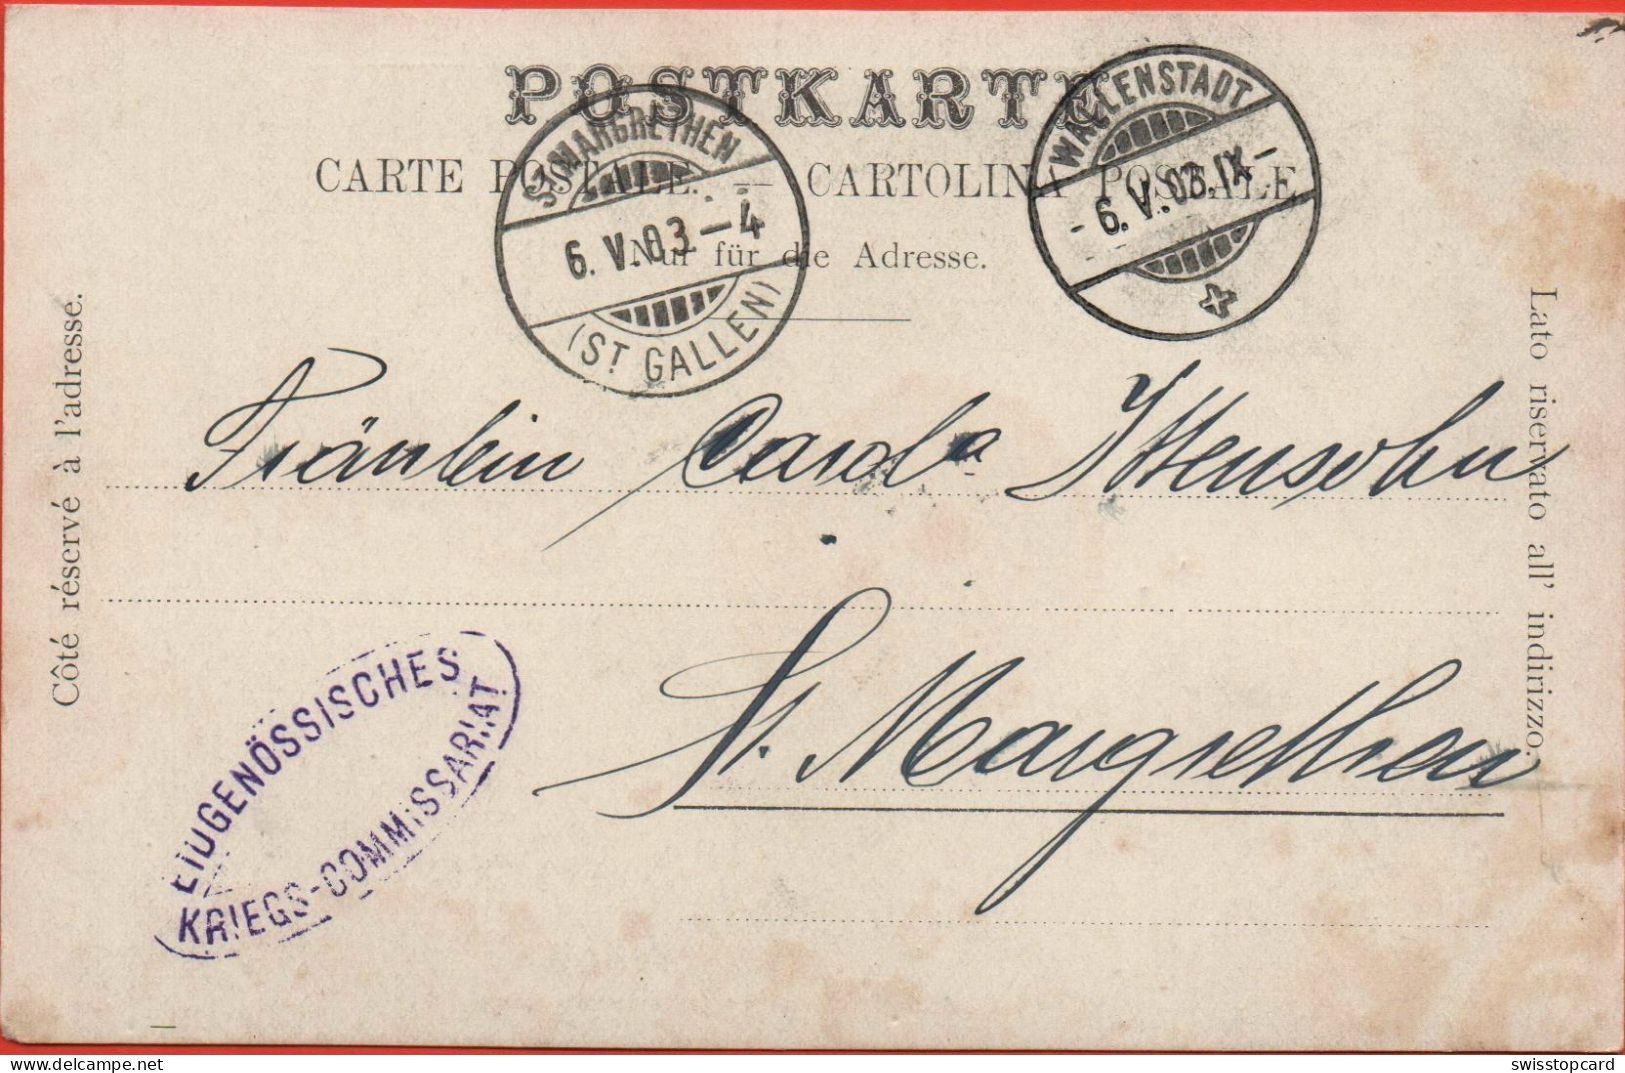 POSTKARTE
CARTE POSTALE. — CARTOLINA POSTALE
Nur für die Adresse.
ST. MARGRETHEN
6. V. 03 – 4
(ST. GALLEN)
WALLENSTADT
- 6. V. 03. IX -
Côté réservé à l'adresse.
Lato riservato all' indirizzo.
Fräulein Carola Ittensohn
St. Margrethen
EIDGENÖSSISCHES
KRIEGS-COMMISSARIAT
delcampe.net
swisstopcard